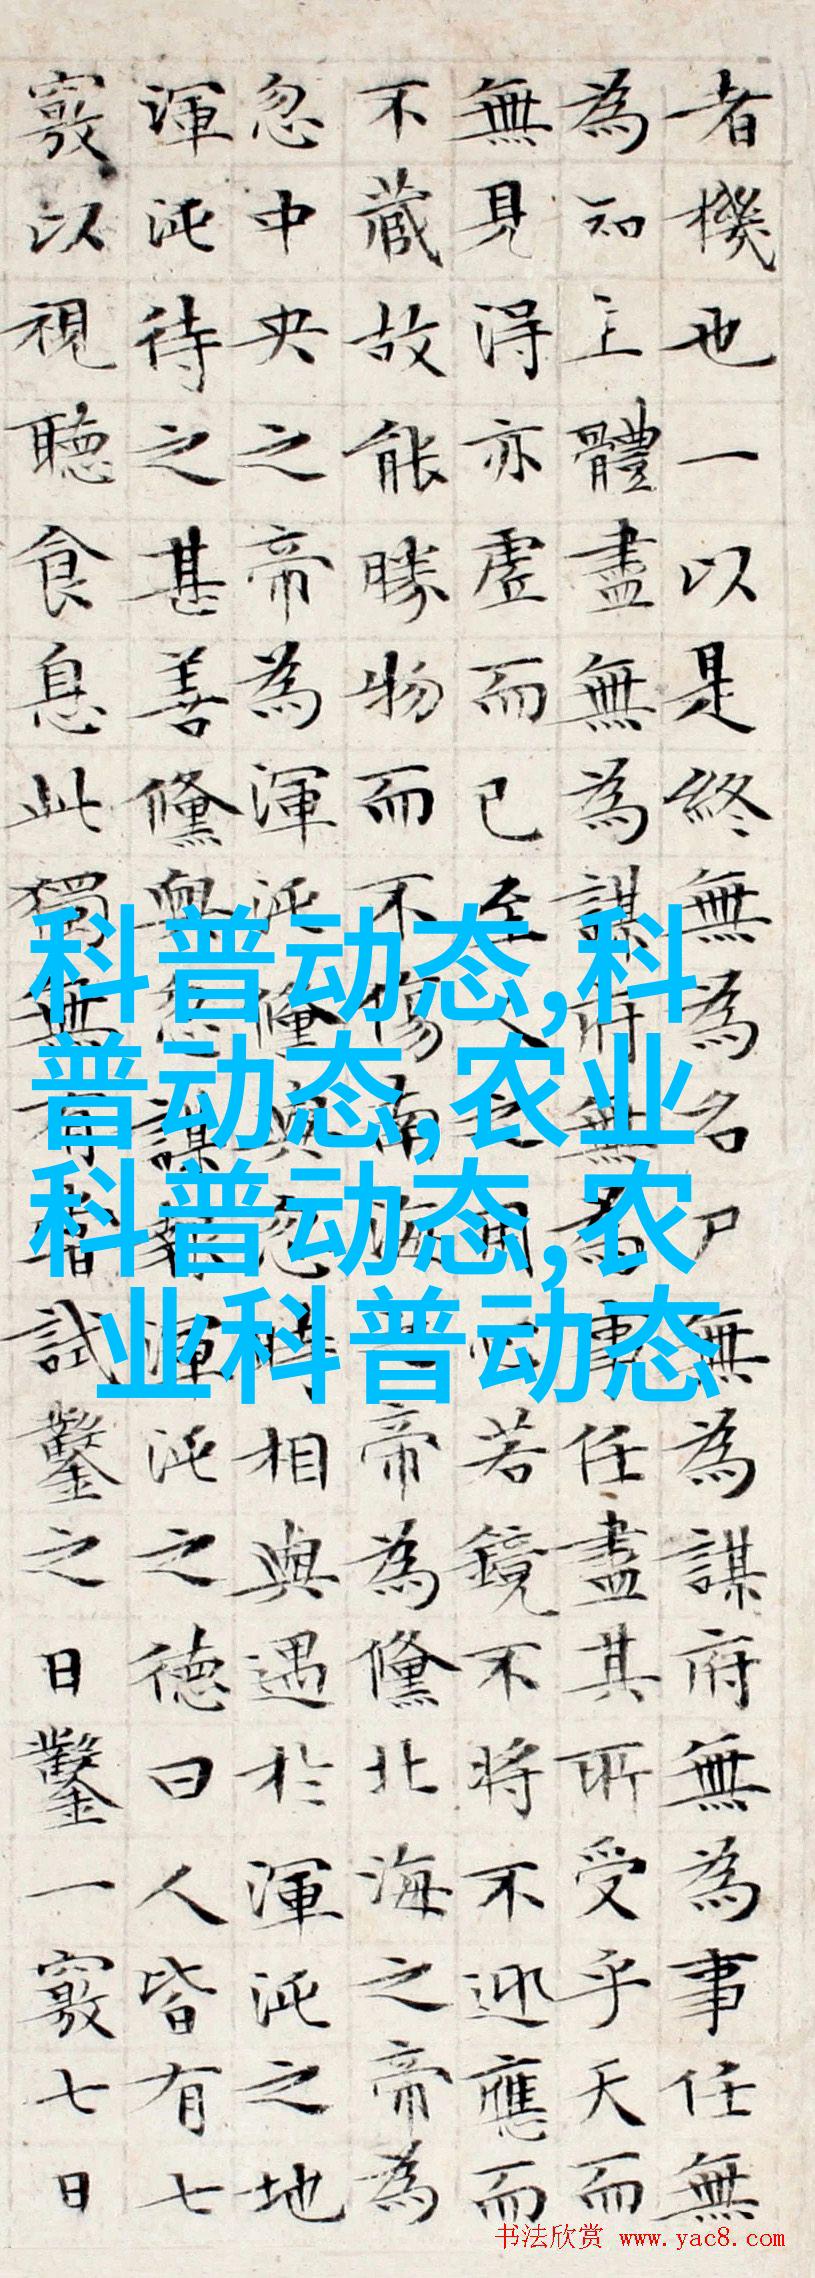 者機也一以是終無為名尸無為謀府無為事任無
為知主體盡無為謀府無為事任盡其所受乎天而
無見得亦虛而已至人之用心若鏡不將不迎應而
不藏故能勝物而不傷南海之帝為儵北海之帝為
忽中央之帝為渾沌儵與忽時相與遇於渾沌之地
渾沌待之甚善儵與忽謀報渾沌之德曰人皆有七
竅以視聽食息此獨無有嘗試鑿之日鑿一竅七日
科普动态,科
普动态,农业
科普动态,农
业科普动态
书法欣赏 www.yac8.com